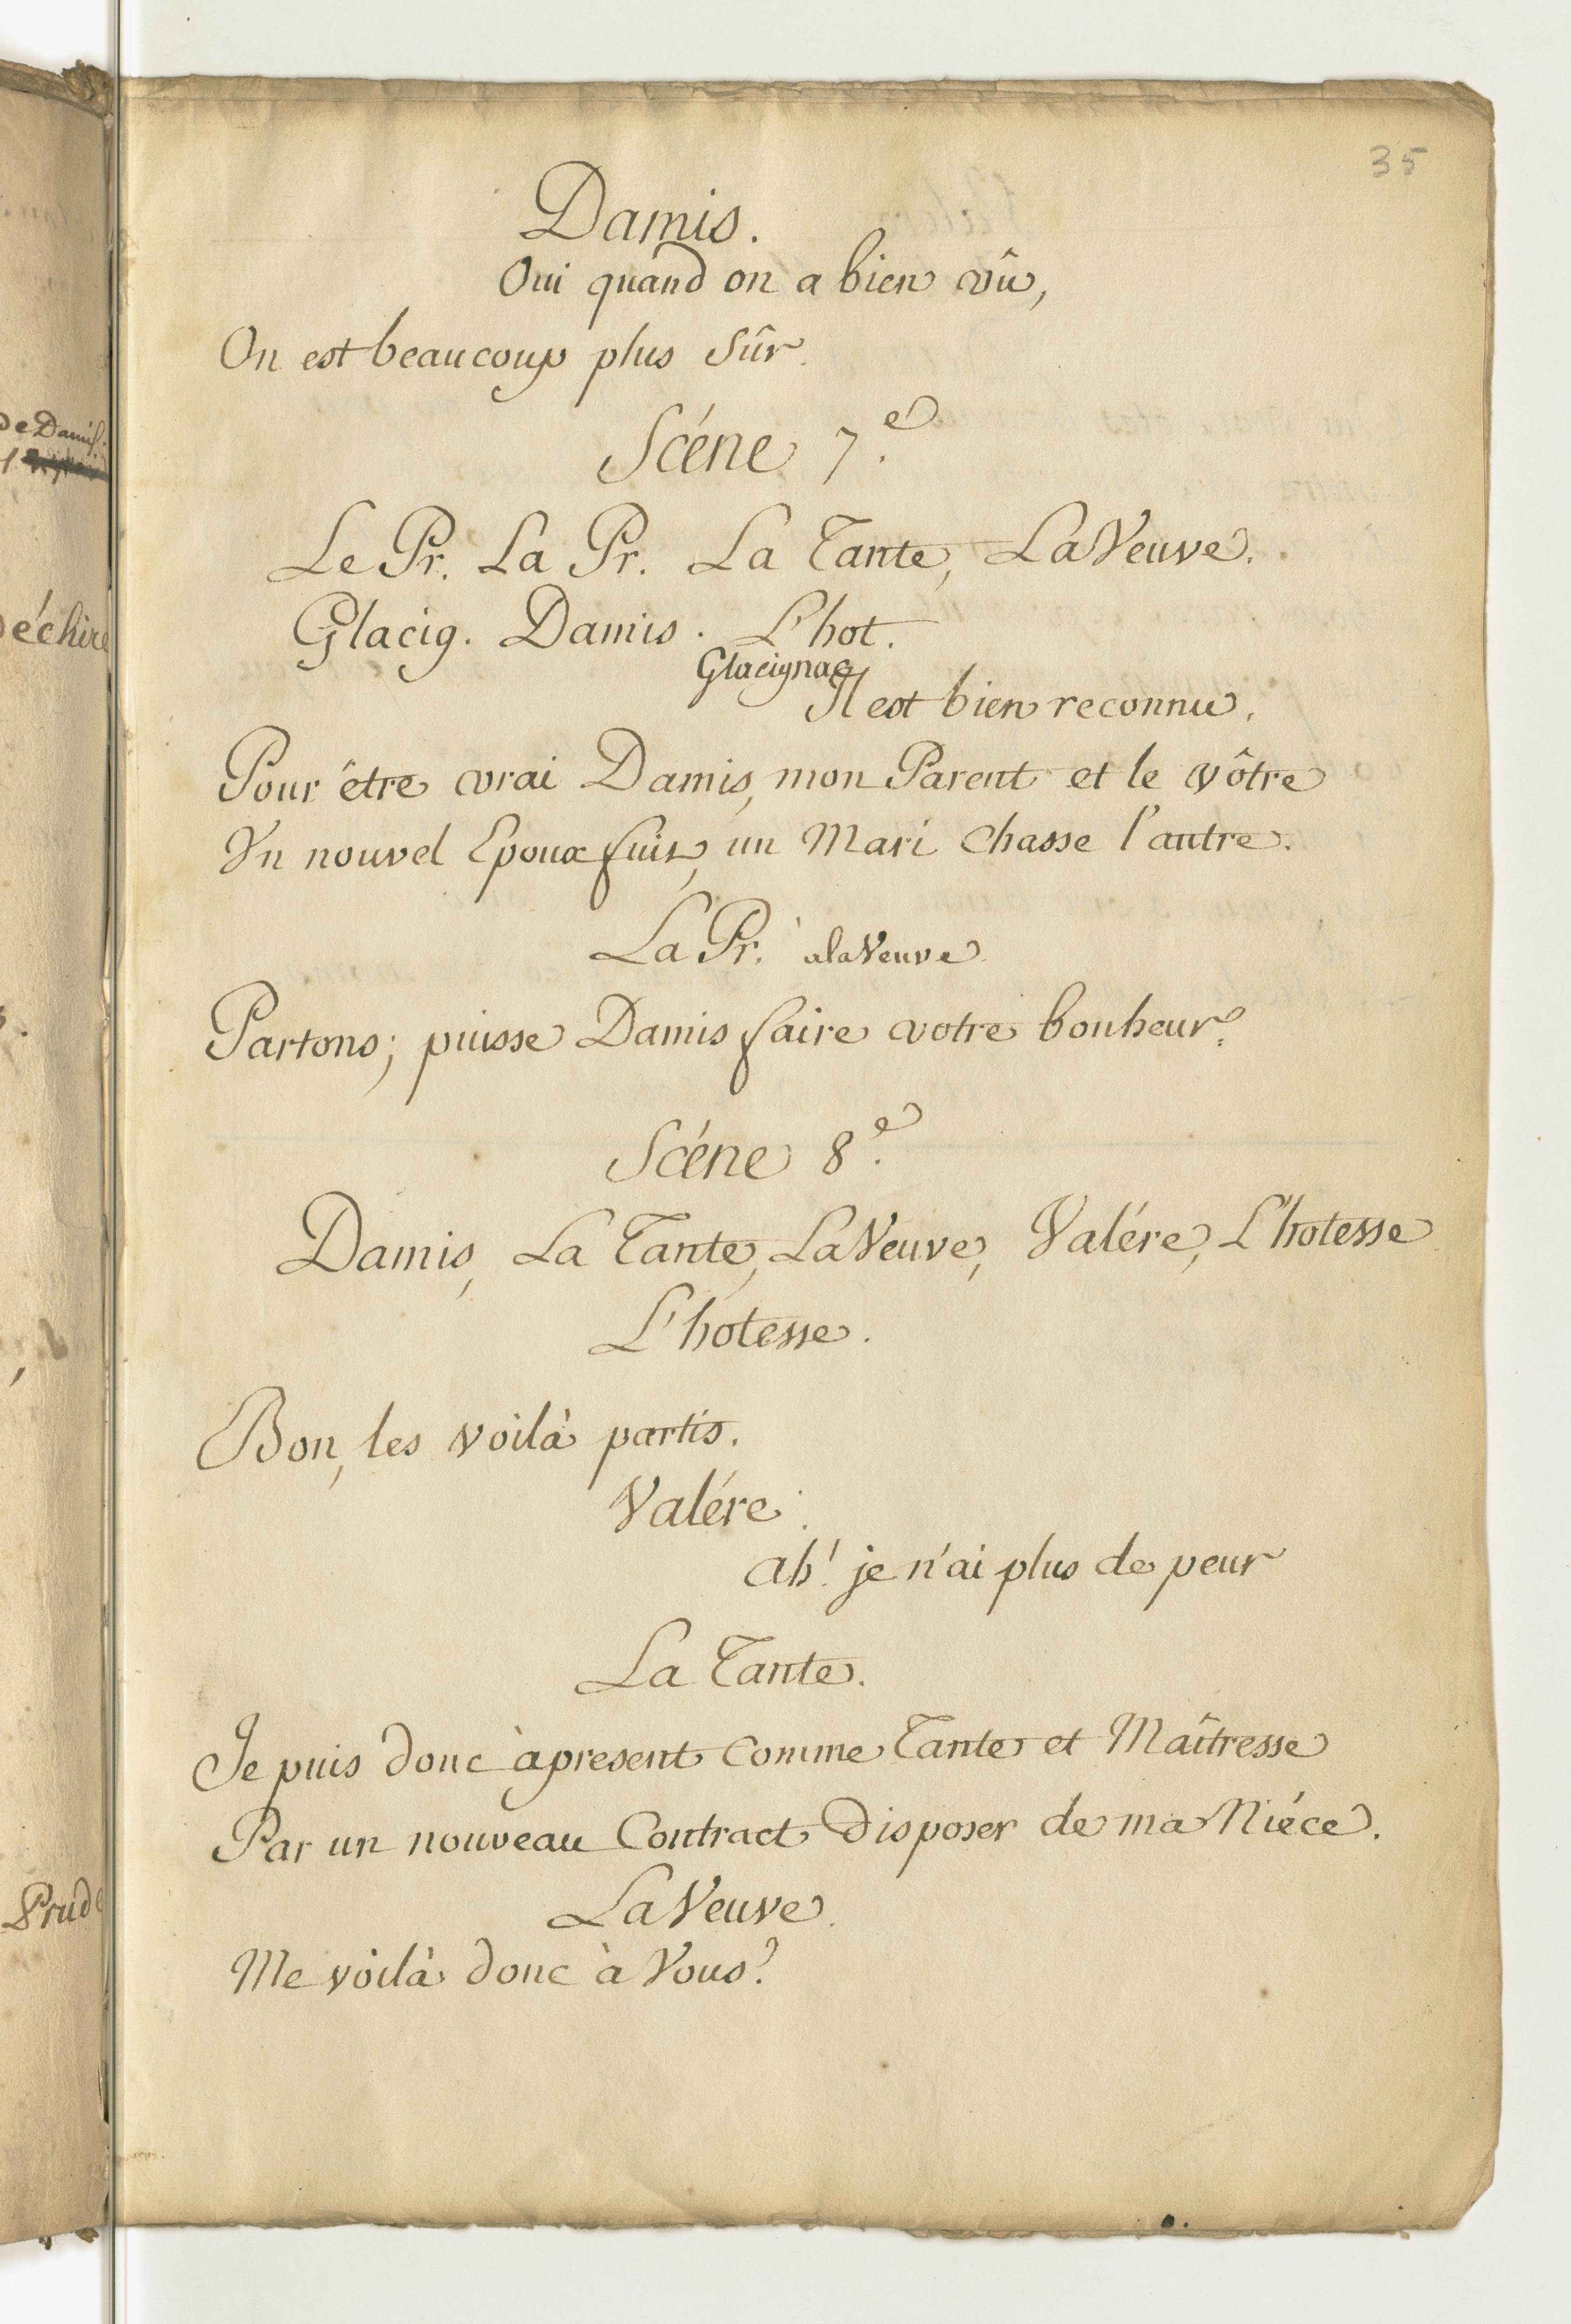 35
Damis.
Oui quand on a bien vû,
On est beaucoup plus sûr.
Scéne 7.e
Le Pr. La Pr. La Tante, La Veuve.
Glacig. Damis. L'hot.
Glacignac
Il est bien reconnu.
Pour être vrai Damis, mon Parent et le vôtre
Un nouvel Epoux fuit, un Mari chasse l'autre.
La Pr. à la Veuve
Partons; puisse Damis faire votre bonheur.
Scéne 8.e
Damis, La Tante, La Veuve, Valére, L'hotesse
L'hotesse.
Bon, les voilà partis.
Valére.
ah! je n'ai plus de peur
La Tante.
Je puis donc àpresent comme Tante et Maîtresse
Par un nouveau Contract disposer de ma Niéce.
La Veuve.
Me voilà donc à Vous?
de Damis.
échire
Prude